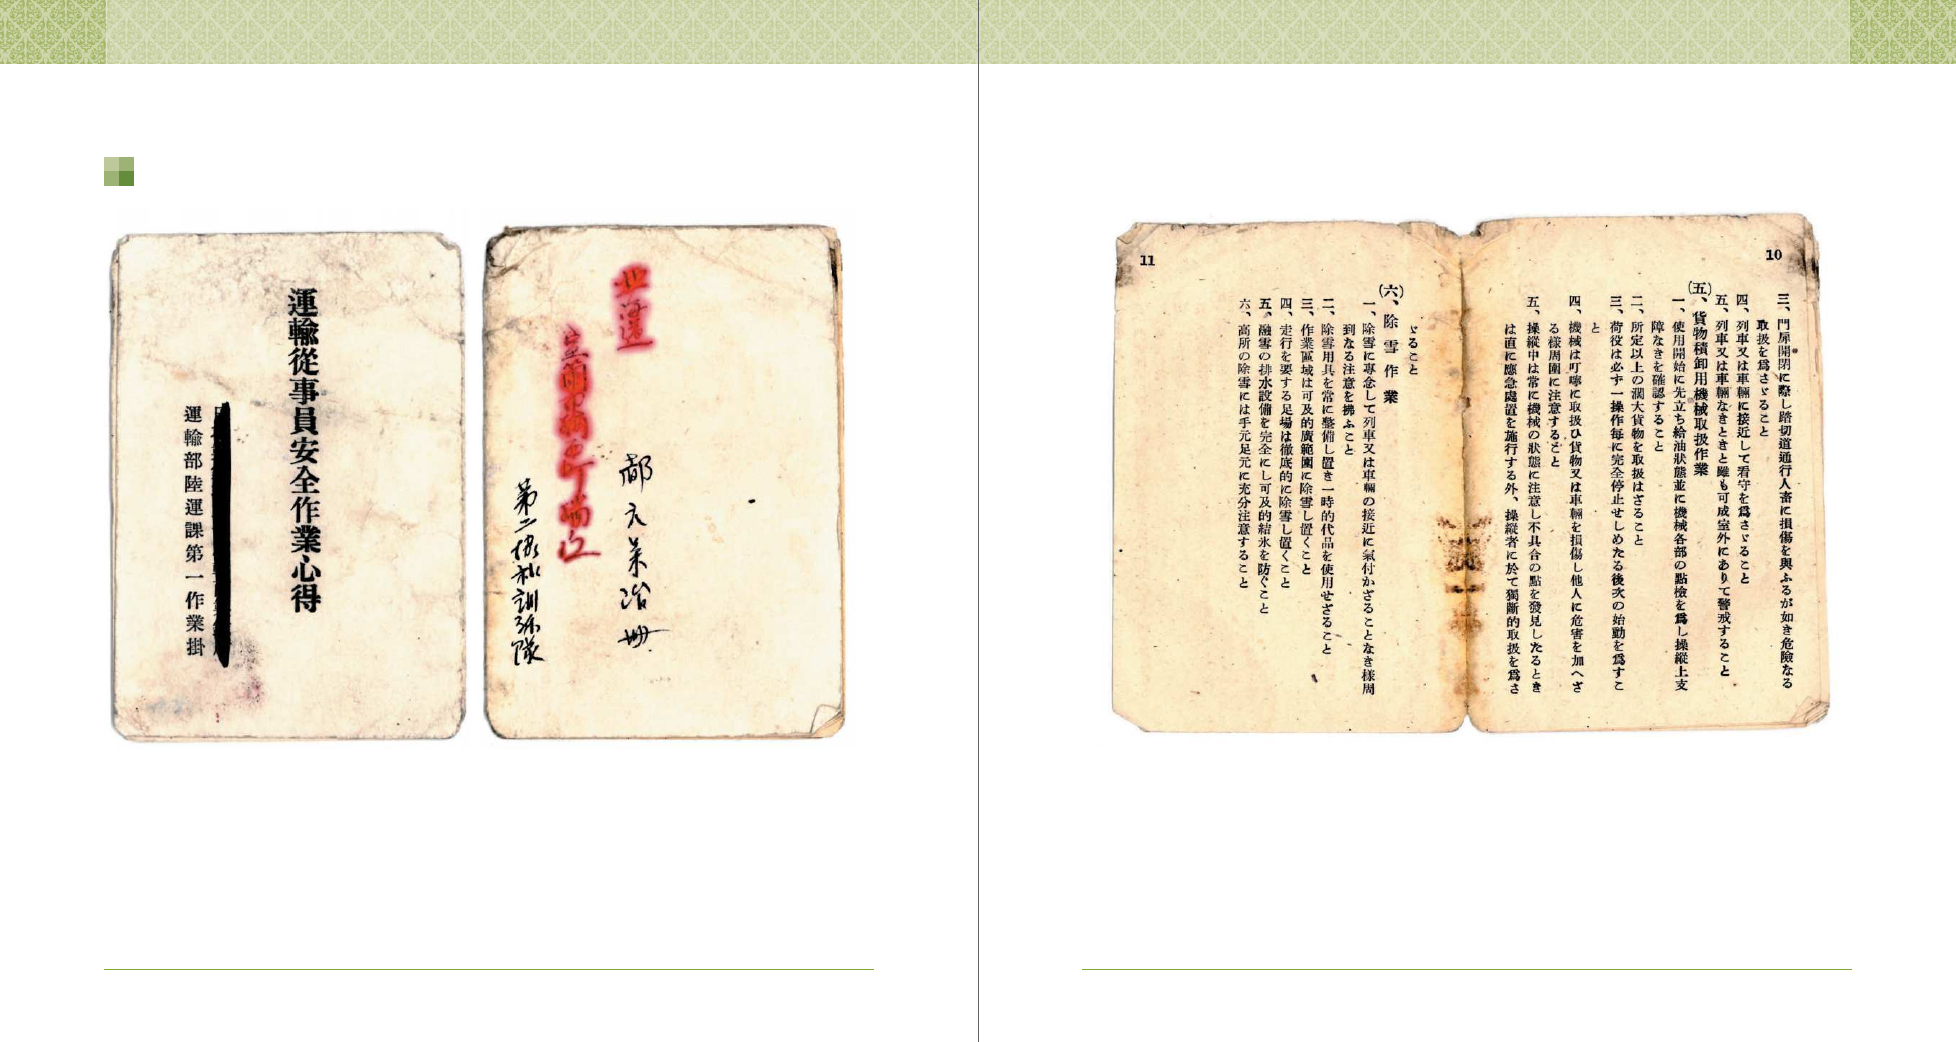 運輸從事員安全作業心得
運輸部陸運課第一作業掛
10
三、門扉開閉に際し踏切道通行人畜に損傷を與ふるが如き危險なる
取扱を爲さゞること
四、列車又は車輛に接近して看守を爲さゞること
五、列車又は車輛なきときと雖も可成室外にありて警戒すること
(五)、貨物積卸用機械取扱作業
一、使用開始に先立ち給油狀態並に機械各部の點檢を爲し操縱上支
障なきを確認すること
二、所定以上の濶大貨物を取扱はざること
三、荷役は必ず一操作每に完全停止せしめたる後次の始動を爲すこ
と
四、機械は叮嚀に取扱ひ貨物又は車輛を損傷し他人に危害を加へざ
る樣周圍に注意すること
五、操縱中は常に機械の狀態に注意し不具合の點を發見したるとき
は直に應急處置を施行する外、操縱者に於て獨斷的取扱を爲さ
11
ざること
(六)、除雪作業
一、除雪に專念して列車又は車輛の接近に氣付かざることなき樣周
到なる注意を拂ふこと
二、除雪用具を常に整備し置き一時的代品を使用せざること
三、作業區域は可及的廣範圍に除雪し置くこと
四、走行を要する足場は徹底的に除雪し置くこと
五、融雪の排水設備を完全にし可及的結氷を防ぐこと
六、高所の除雪には手元足元に充分注意すること